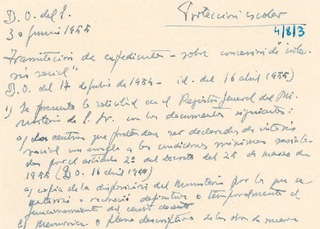 B. O. del E.
Protección escolar
30 junio 1955
4/8/3
Tramitación de expedientes sobre concesión de "interés social"
(B. O. del 17 de julio de 1954 - id. del 16 abril 1955)
1) Se presente la solicitud en el Registro General del Ministerio de E. N. con los documentos siguientes:
a) Los centros que pretendan ser declarados de interés
social con arreglo a las condiciones mínimas señaladas
por el artículo 2º del Decreto del 25 de marzo de
1955 (B.O. 16 abril
a) copia de la disposición del Ministerio por la que se
autorizó o reconoció definitiva o temporalmente el
funcionamiento del centro docente
b) Memoria o plano descriptivo de las obras de nueva